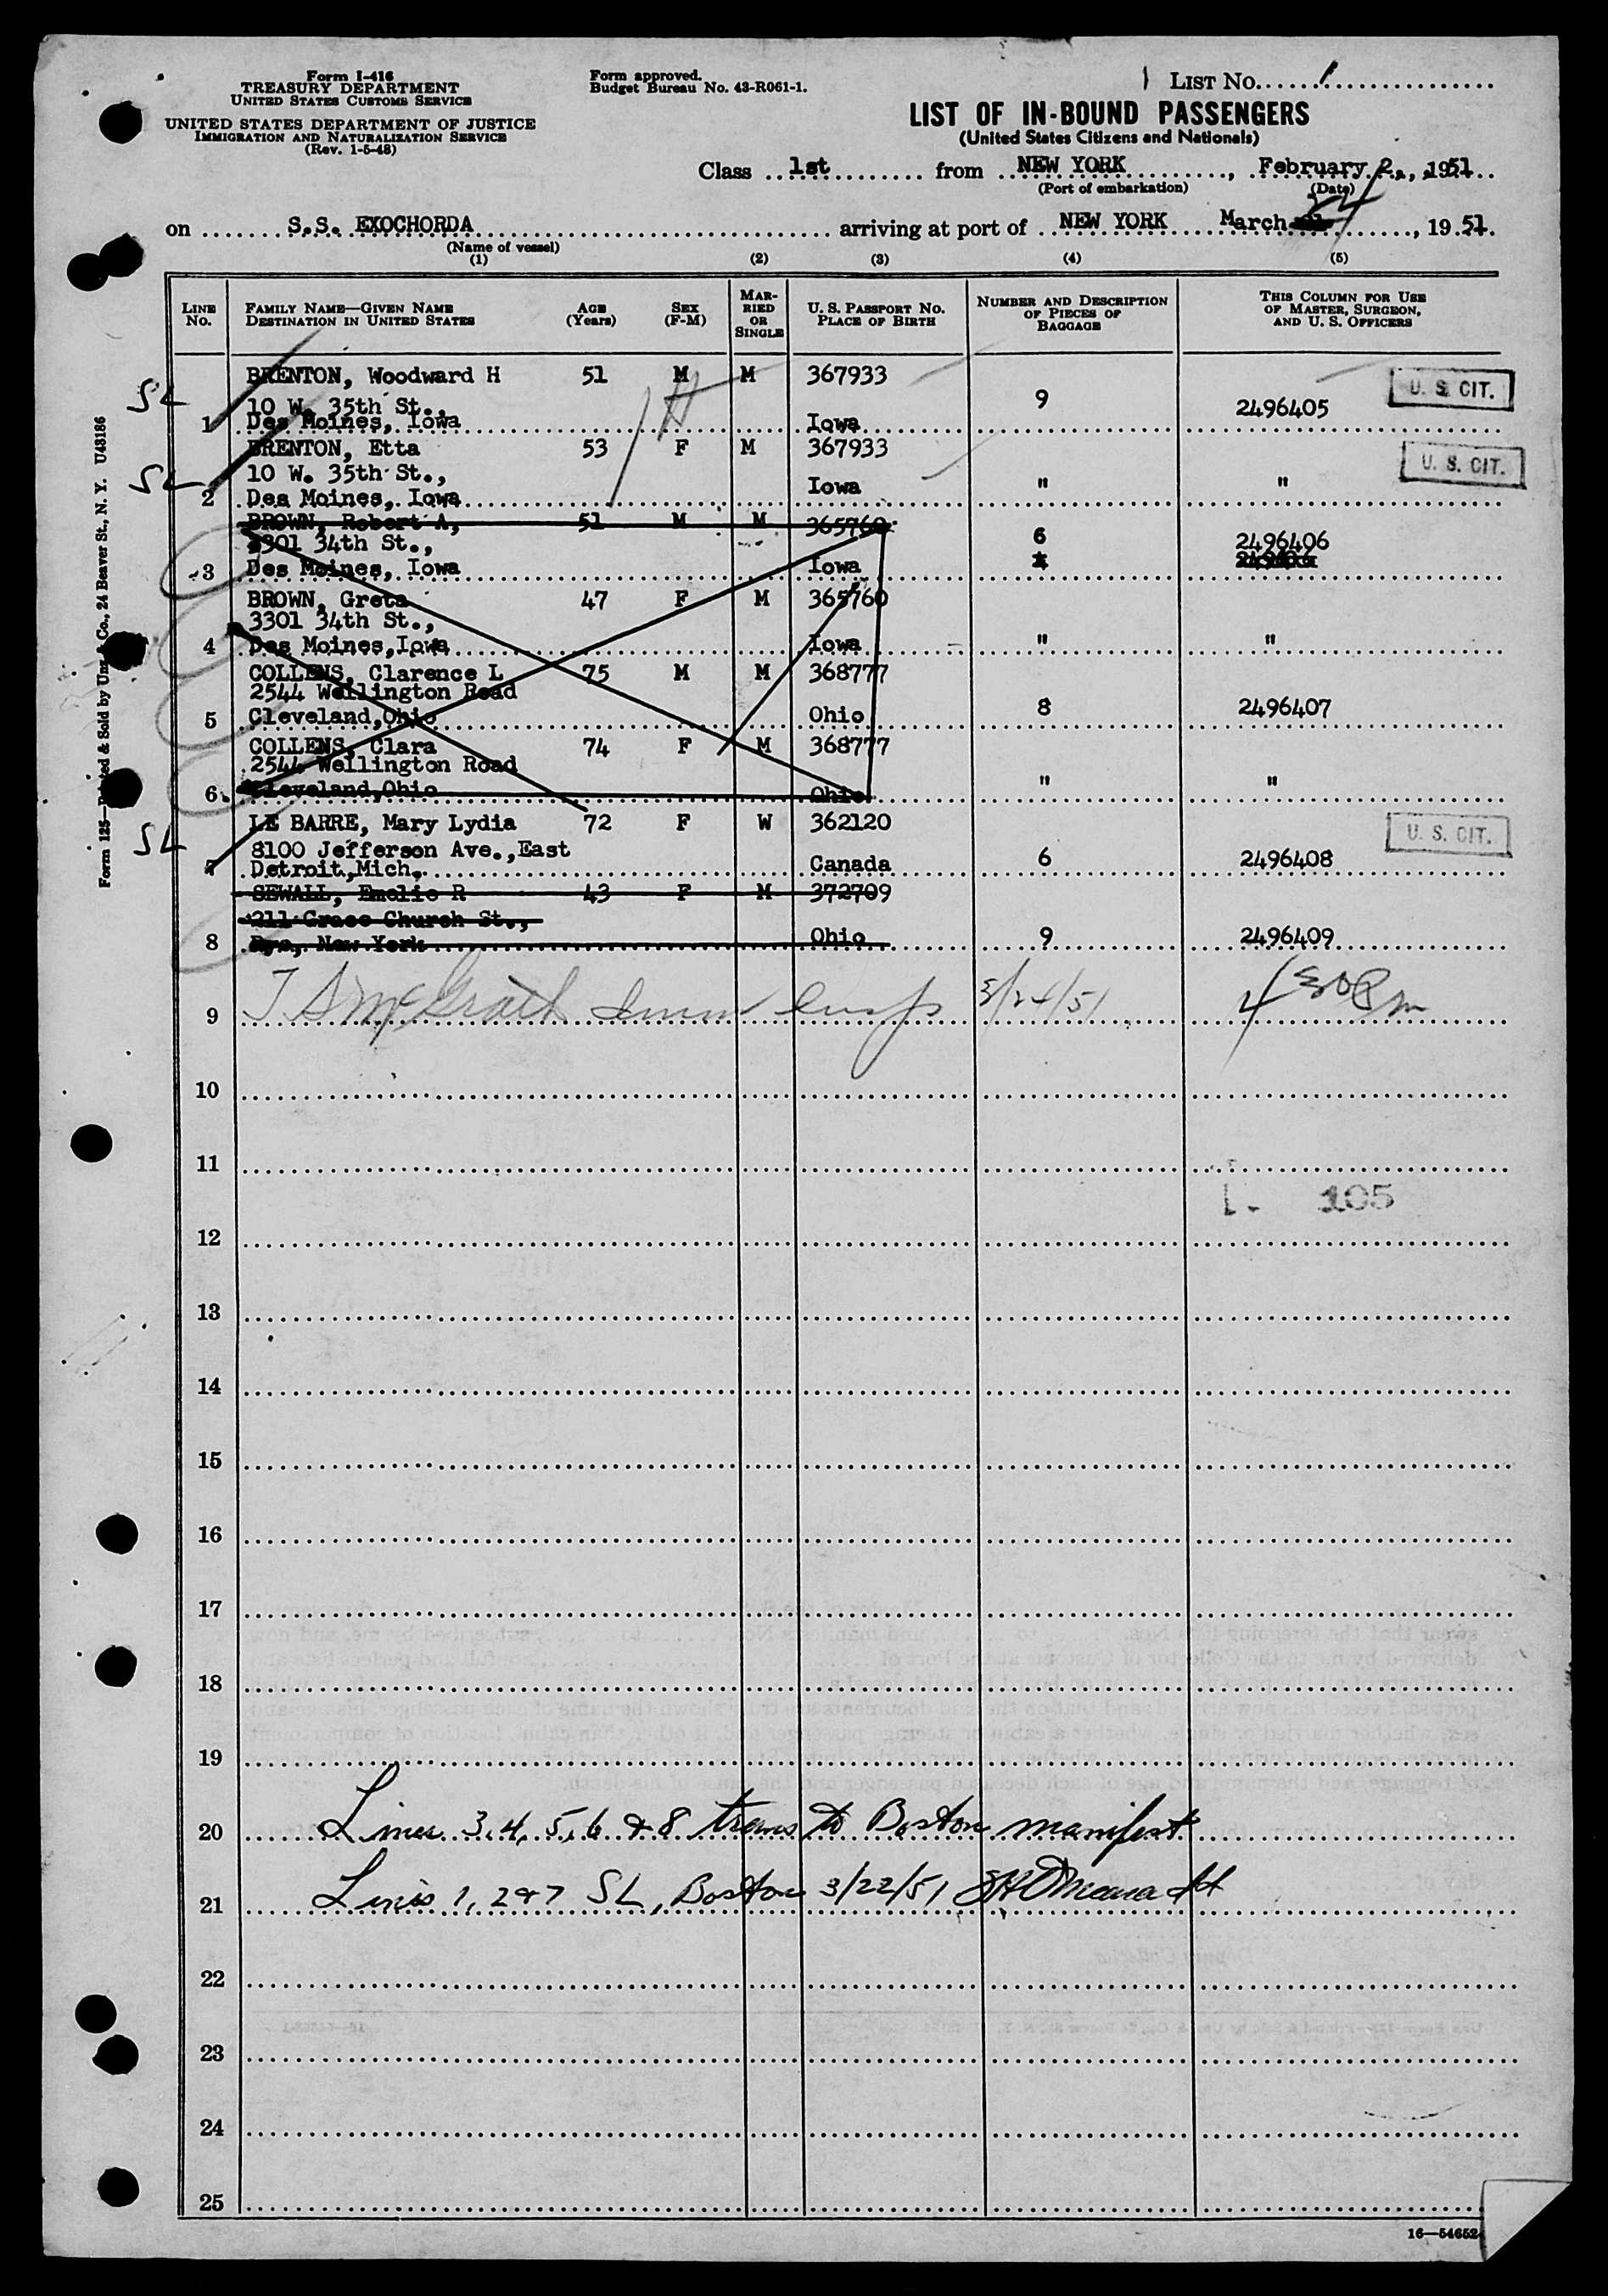 Form I-416
TREASURY DEPARTMENT
UNITED STATES CUSTOMS SERVICE
UNITED STATES DEPARTMENT OF JUSTICE
IMMIGRATION AND NATURALIZATION SERVICE
(Rev. 1-5-48)
Form approved.
Budget Bureau No. 43-R061-1.
LIST NO. 1
LIST OF IN-BOUND PASSENGERS
(United States Citizens and Nationals)
Class 1st from NEW YORK, February 2, 1951
(Port of embarkation) (Date)
on S.S. EXOCHORDA arriving at port of NEW YORK March 24, 1951.
(Name of vessel)
(1) (2) (3) (4) (5)
LINE NO. FAMILY NAME—GIVEN NAME DESTINATION IN UNITED STATES AGE (Years) SEX (F-M) MARRIED OR SINGLE U. S. PASSPORT NO. PLACE OF BIRTH NUMBER AND DESCRIPTION OF PIECES OF BAGGAGE THIS COLUMN FOR USE OF MASTER, SURGEON, AND U. S. OFFICERS
SL BRENTON, Woodward H 51 M M 367933 U. S. CIT.
10 W. 35th St., 9 2496405
1 Des Moines, Iowa Iowa
BRENTON, Etta 53 F M 367933 U. S. CIT.
SL 10 W. 35th St., Iowa " "
2 Des Moines, Iowa
BROWN, Robert A, 51 M M 365760
3301 34th St., 6 2496406
3 Des Moines, Iowa Iowa
BROWN, Greta 47 F M 365760
3301 34th St.,
4 Des Moines,Iowa Iowa " "
COLLENS, Clarence L 75 M M 368777
2544 Wellington Road
5 Cleveland,Ohio Ohio 8 2496407
COLLENS, Clara 74 F M 368777
2544 Wellington Road
6 Cleveland,Ohio Ohio " "
SL LE BARRE, Mary Lydia 72 F W 362120 U. S. CIT.
8100 Jefferson Ave.,East
7 Detroit,Mich. Canada 6 2496408
SEWALL, Emelie R 43 F M 372709
211 Grace Church St.,
8 Rye, New York Ohio 9 2496409
9 T S McGrath Imm Insp 3/24/51 4 30 Pm
10
11
105
12
13
14
15
16
17
18
19
20 Lines 3,4,5,6 & 8 trans to Boston manifest
21 Lines 1, 2 & 7 SL, Boston 3/22/51
22
23
24
25
16—54652
Form 125—Printed & Sold by Unz & Co., 24 Beaver St., N. Y. U43186